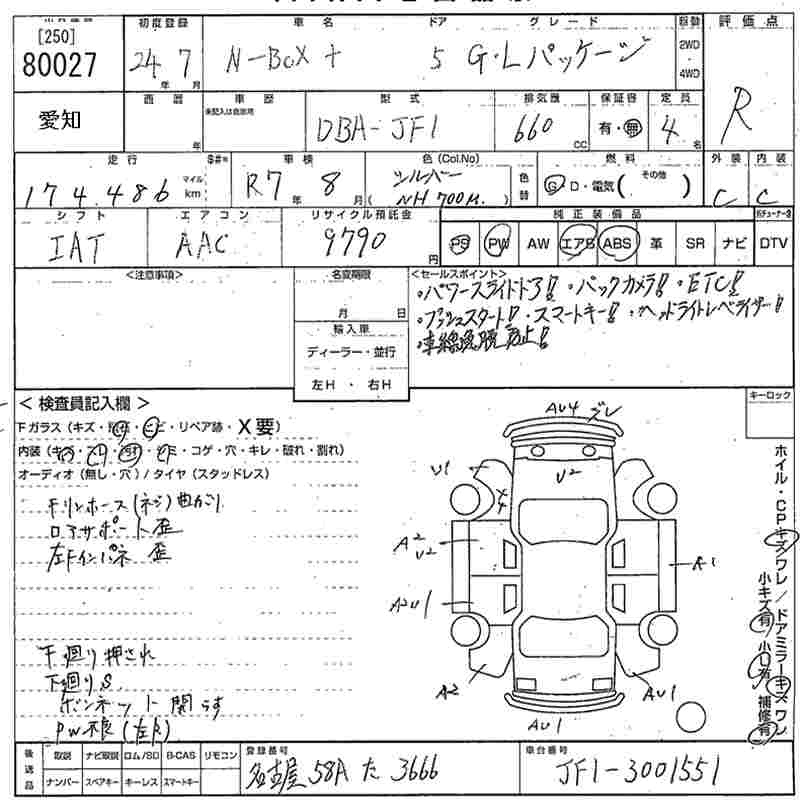 [250]
80027
初度登録 車名 ドア グレード 駆動 評価点
24年 7月 N-BOX + 5 G・Lパッケージ 2WD・4WD R
愛知
西暦 車歴 型式 排気量 保証書 定員
未記入は自家用
年 DBA-JF1 660 CC 有・無 4名
走行 車検 色(Col.No) 色替 燃料 外装 内装
174,486 マイル km R7年 8月 シルバー (NH700M.) G・D・電気( その他 ) C C
シフト エアコン リサイクル預託金 純正装備品
IAT AAC 9790円 PS PW AW エアB ABS 革 SR ナビ DTV
<注意事項> 名変期限 <セールスポイント>
月 日
・パワースライドドア! ・バックカメラ! ・ETC!
・プッシュスタート! ・スマートキー! ・ヘッドライトレベライザー!
輸入車
ディーラー・並行
左H ・ 右H
キーロック
<検査員記入欄>
下ガラス(キズ・・ヒビ・リペア跡・X要)
内装(キズ・・・・コゲ・穴・キレ・破れ・割れ)
オーディオ(無し・穴)/タイヤ(スタッドレス)
ロアサポート歪
左Fインパネ 歪
下廻り押され
下廻りS
ボンネット開らず
PW不良(左R)
AU4 ズレ
U1
U2
X4
A2
U2
A1
A2U1
A2
AU1
AU1
ホイル・CPキズワレ/ドアミラーキズワレ
小キズ有 小凹有 補修有
後送品 取説 ナビ取説 ロム/SD B-CAS リモコン 登録番号 車台番号
ナンバー スペアキー キーレス スマートキー 名古屋 58A た 3666 JF1-3001551